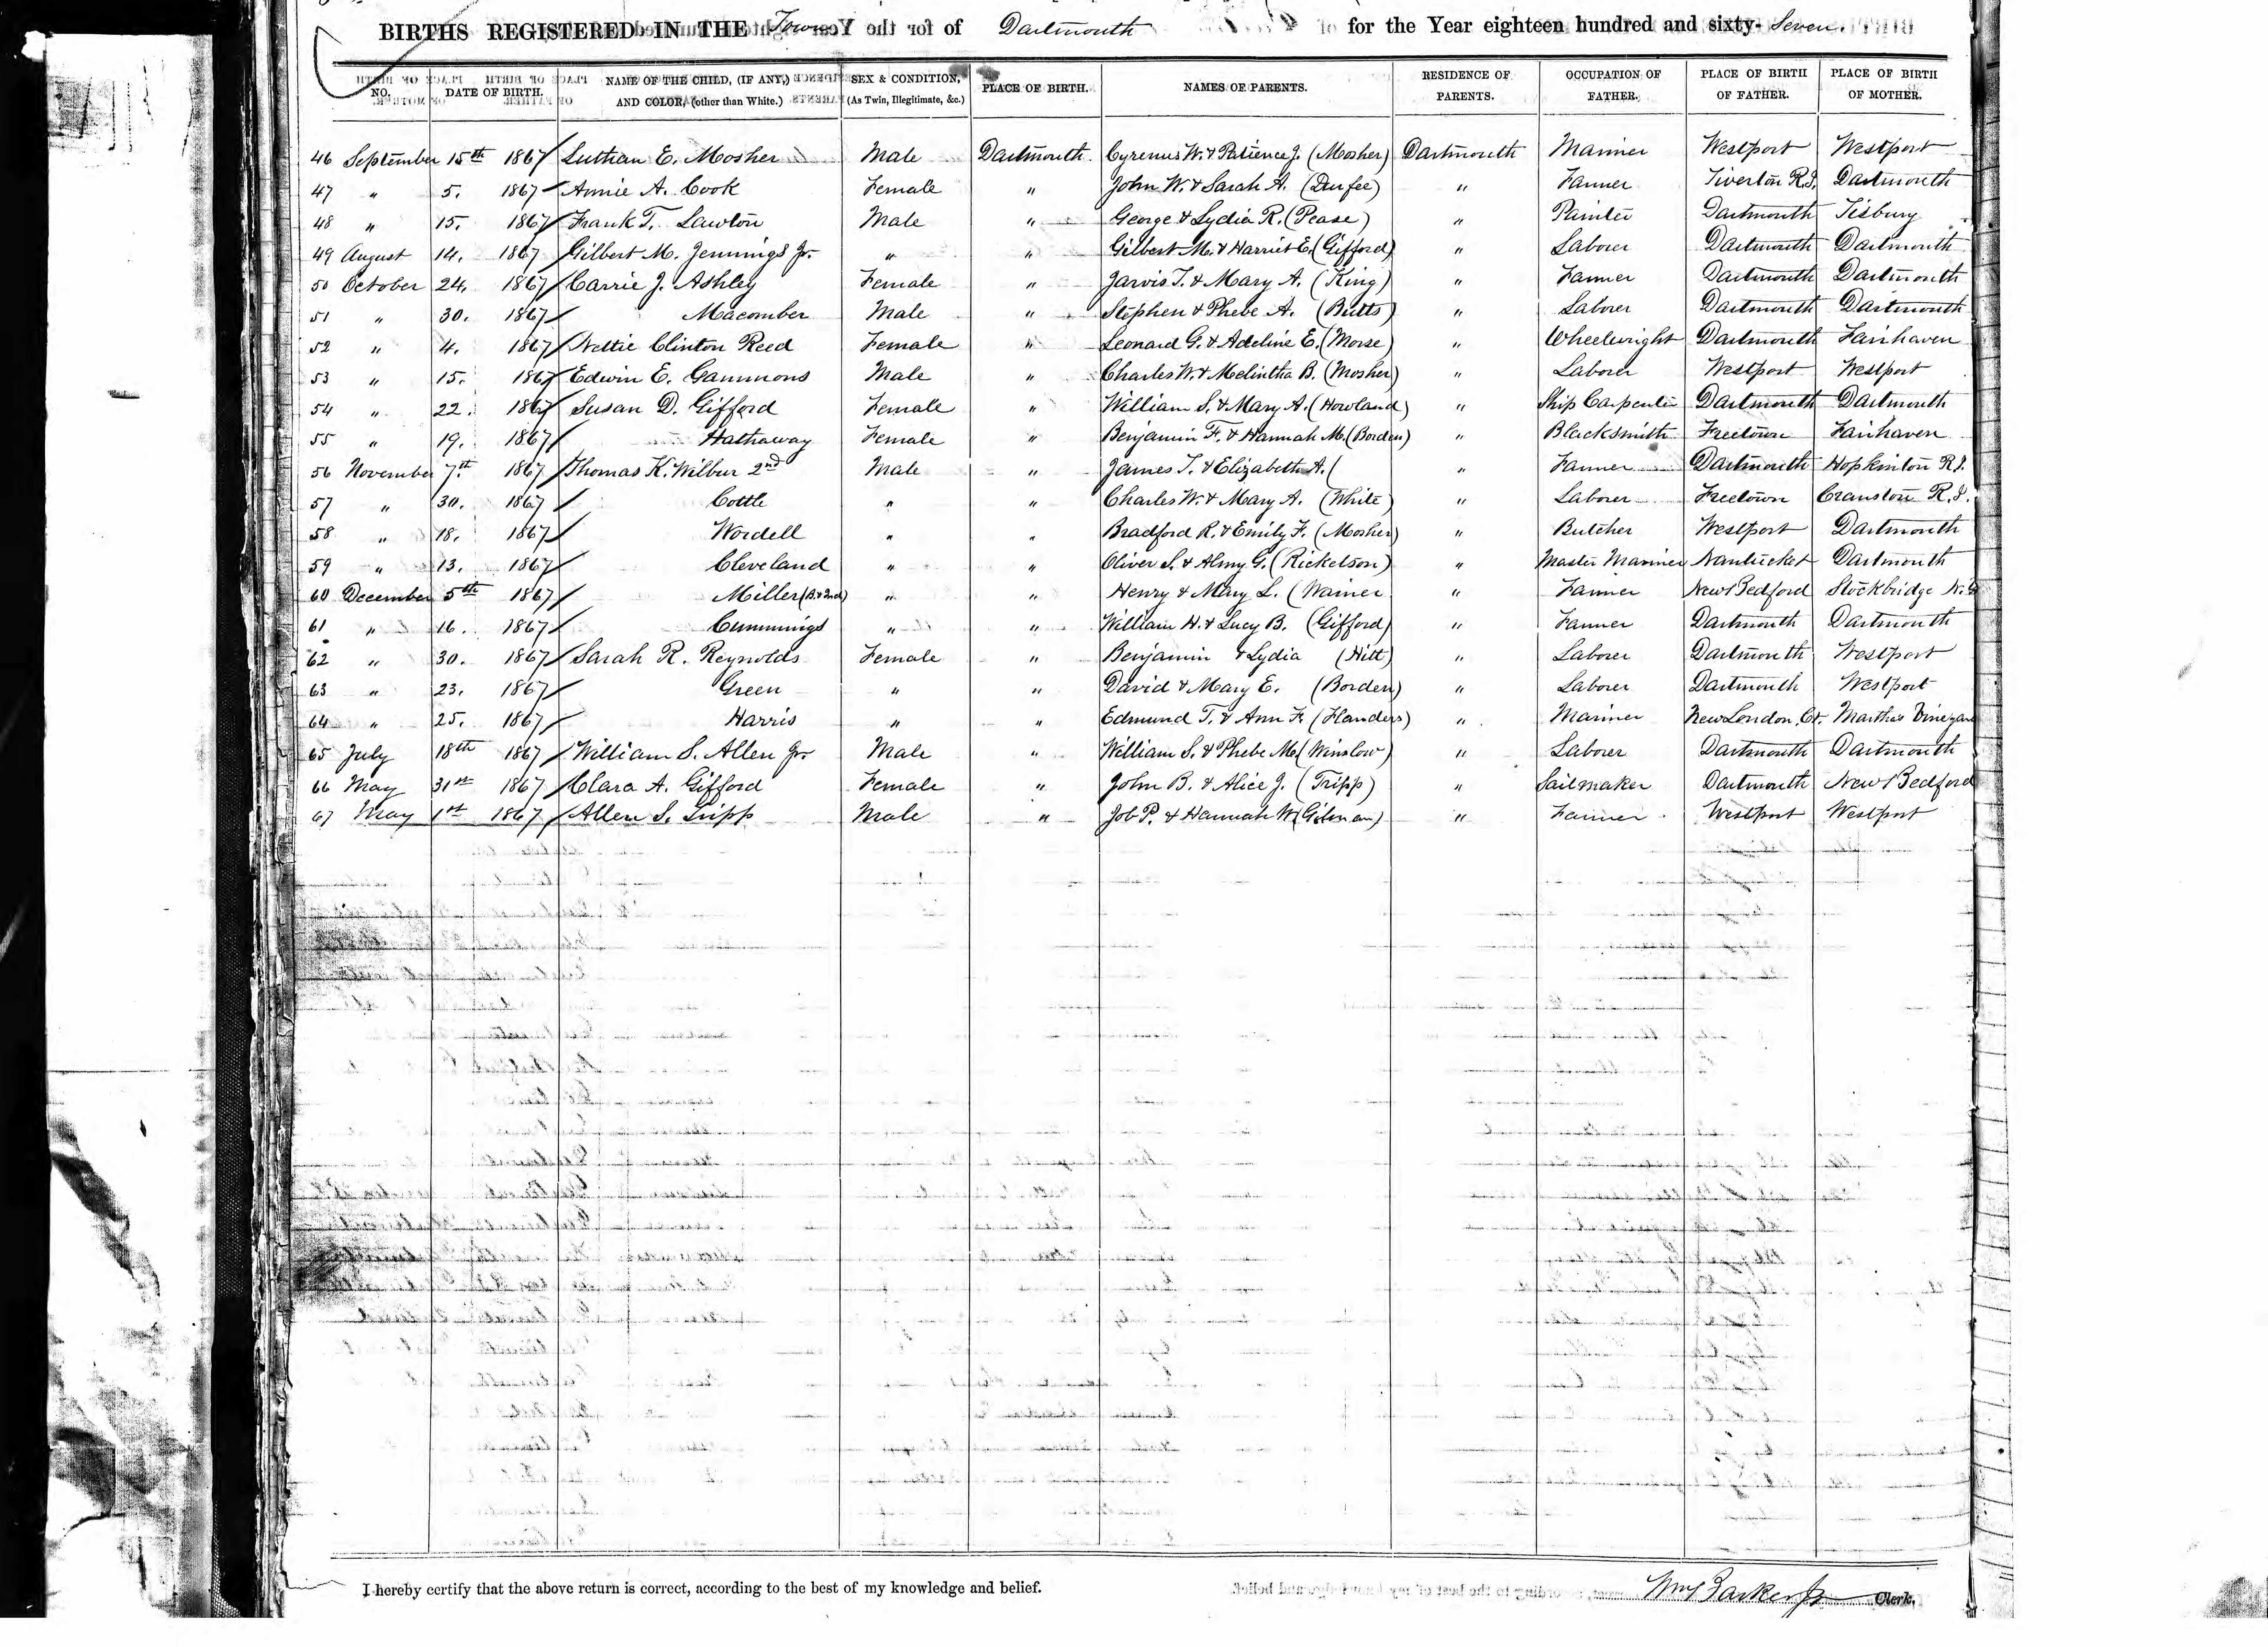 BIRTHS REGISTERED IN THE Town of Dartmouth for the Year eighteen hundred and sixty-Seven.
NO. DATE OF BIRTH. NAME OF THE CHILD, (IF ANY,) AND COLOR, (other than White.) SEX & CONDITION, (As Twin, Illegitimate, &c.) PLACE OF BIRTH. NAMES OF PARENTS. RESIDENCE OF PARENTS. OCCUPATION OF FATHER. PLACE OF BIRTH OF FATHER. PLACE OF BIRTH OF MOTHER.
46 September 15th 1867 Luthan E. Mosher Male Dartmouth Cyrenus W. & Patience J. (Mosher) Dartmouth Mariner Westport Westport
47 " 5. 1867 Annie A. Cook Female " John W. & Sarah A. (Durfee) " Farmer Tiverton R.I. Dartmouth
48 " 15. 1867 Frank T. Lawton Male " George & Lydia R. (Pease) " Painter Dartmouth Tisbury
49 August 14. 1867 Gilbert M. Jennings Jr. " " Gilbert M. & Harriet E. (Gifford) " Laborer Dartmouth Dartmouth
50 October 24. 1867 Carrie J. Ashley Female " Jarvis T. & Mary A. (King) " Farmer Dartmouth Dartmouth
51 " 30. 1867 Macomber Male " Stephen & Phebe A. (Butts) " Laborer Dartmouth Dartmouth
52 " 4. 1867 Nettie Clinton Reed Female " Leonard G. & Adeline E. (Morse) " Wheelwright Dartmouth Fairhaven
53 " 15. 1867 Edwin E. Gammons Male " Charles W. & Melintha B. (Mosher) " Laborer Westport Westport
54 " 22. 1867 Susan D. Gifford Female " William S. & Mary A. (Howland) " Ship Carpenter Dartmouth Dartmouth
55 " 19. 1867 Hathaway Female " Benjamin F. & Hannah M. (Borden) " Blacksmith Freetown Fairhaven
56 November 7th 1867 Thomas K. Wilbur 2nd Male " James T. & Elizabeth A. ( " Farmer Dartmouth Hopkinton R.I.
57 " 30. 1867 Cottle " " Charles W. & Mary A. (White) " Laborer Freetown Cranston R.I.
58 " 18. 1867 Wordell " " Bradford R. & Emily F. (Mosher) " Butcher Westport Dartmouth
59 " 13. 1867 Cleveland " " Oliver S. & Almy G. (Ricketson) " Master Mariner Nantucket Dartmouth
60 December 5th 1867 Miller (B. & 2nd) " " Henry & Mary L. (Wainer " Farmer New Bedford Stockbridge
61 " 16. 1867 Cummings " " William H. & Lucy B. (Gifford) " Farmer Dartmouth Dartmouth
62 " 30. 1867 Sarah R. Reynolds Female " Benjamin & Lydia (Hitt) " Laborer Dartmouth Westport
63 " 23. 1867 Green " " David & Mary E. (Borden) " Laborer Dartmouth Westport
64 " 25. 1867 Harris " " Edmund T. & Ann F. (Flanders) " Mariner New London, Ct. Marthas Vineyard
65 July 18th 1867 William S. Allen Jr. Male " William S. & Phebe M. (Winslow) " Laborer Dartmouth Dartmouth
66 May 31st 1867 Clara A. Gifford Female " John B. & Alice J. (Tripp) " Sailmaker Dartmouth New Bedford
67 May 1st 1867 Allen S. Tripp Male " Job P. & Hannah W. (Gilman) " Farmer Westport Westport
I hereby certify that the above return is correct, according to the best of my knowledge and belief.
Wm Barker Jr Clerk.